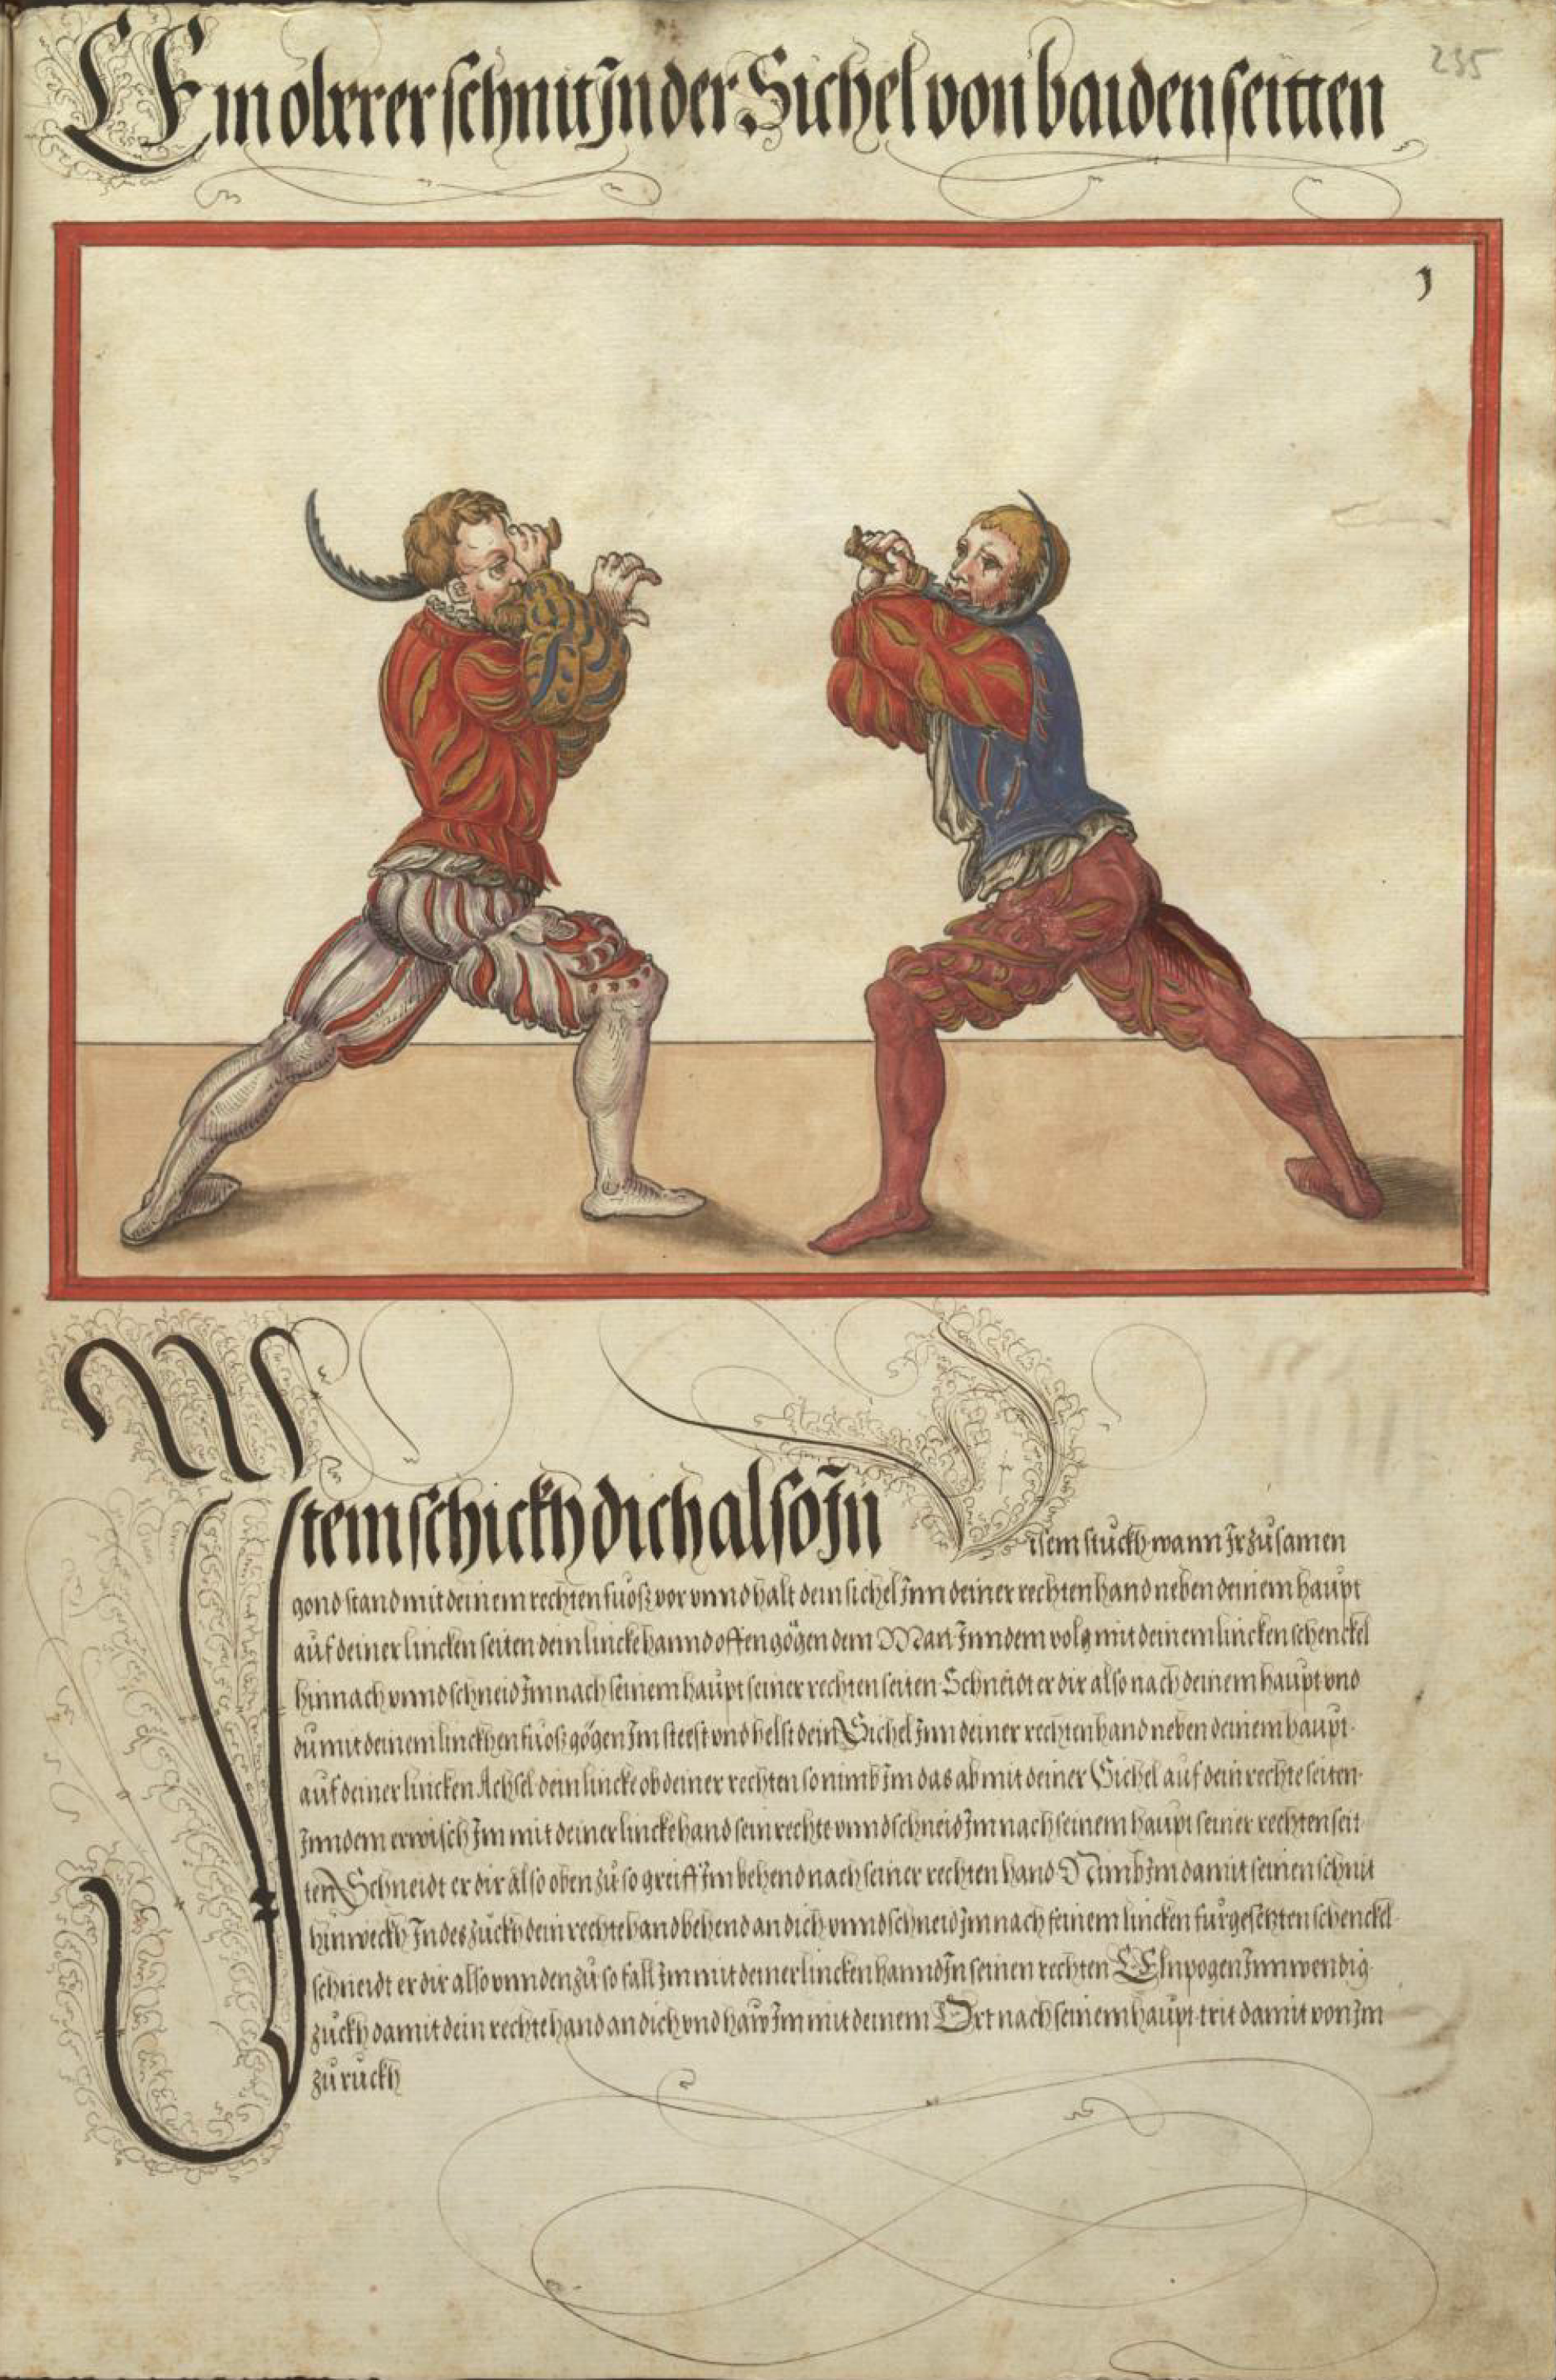 Ein oberer schnit Jn der Sichel von baiden seitten
235
1
Jtem schickh dich also Jn disem stuckh wann Jr zusamen
gond stand mit deinem rechten fuosz vor vnnd halt dein sichel Jnn deiner rechten hand neben deinem haupt
auf deiner lincken seiten dein lincke hannd offen gögen dem Man Jnn dem volg mit deinem lincken schenckel
hinnach vnnd schneid Jm nach seinem haupt seiner rechten seiten Schneidt er dir also nach deinem haupt vnd
du mit deinem linckhen fuosz gögen Jm steest vnd helst dein Sichel Jnn deiner rechten hand neben deinem haupt
auf deiner lincken Achsel dein lincke ob deiner rechten so nimb Jm das ab mit deiner Sichel auf dein rechte seiten
Jnn dem erwisch Jm mit deiner lincke hand sein rechte vnnd schneid Jm nach seinem haupt seiner rechten seit
ten Schneidt er dir also oben zu so greiff Jm behend nach seiner rechten hand Nimb Jm damit seinen schnit
hinweckh Jndes zuckh dein rechte hand behend an dich vnnd schneid Jm nach seinem lincken furgesetzten schenckel
schneidt er dir also vnnden zu so fall Jm mit deiner lincken hannd Jn seinen rechten Elnpogen Jnnwendig
zuckh damit dein rechte hand an dich vnd haw Jm mit deinem Ort nach seinem haupt trit damit von Jm
zu ruckh